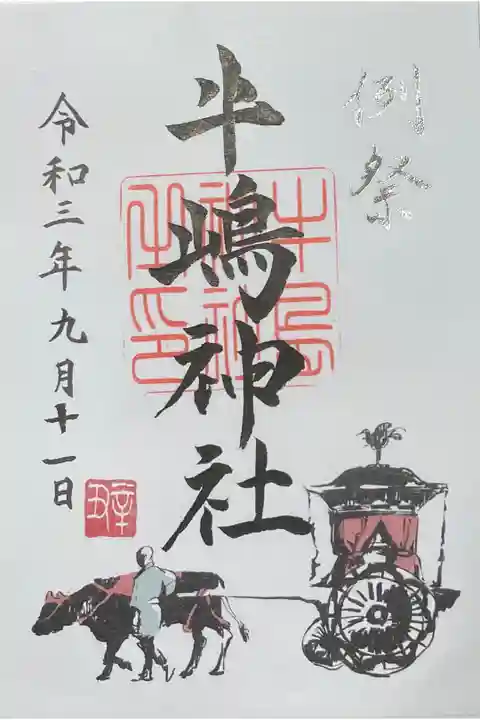 例祭
牛嶋神社
牛嶋神社之印
令和三年九月十一日
辛丑